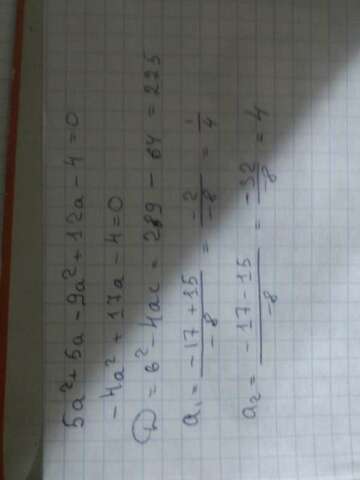 5a² + 5a - 9a² + 12a - 4 = 0
-4a² + 17a - 4 = 0
D = b² - 4ac = 289 - 64 = 225
a₁ = (-17 + 15)/(-8) = (-2)/(-8) = 1/4
a₂ = (-17 - 15)/(-8) = (-32)/(-8) = 4